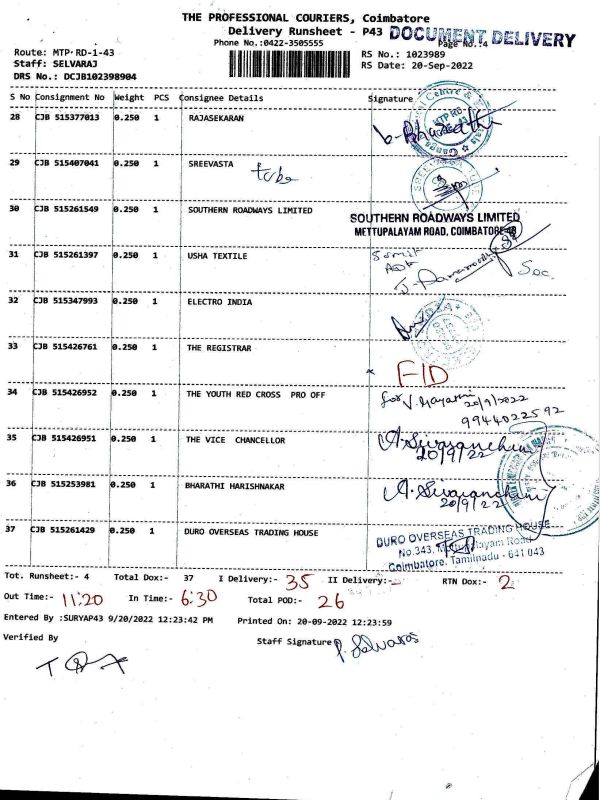 THE PROFESSIONAL COURIERS, Coimbatore
Delivery Runsheet - P43 DOCUMENT DELIVERY
Phone No.:0422-3505555 Page No.:4
Route: MTP-RD-1-43 RS No.: 1023989
Staff: SELVARAJ RS Date: 20-Sep-2022
DRS No.: DCJB102398904
S No Consignment No Weight PCS Consignee Details Signature
28 CJB 515377013 0.250 1 RAJASEKARAN
29 CJB 515407041 0.250 1 SREEVASTA
30 CJB 515261549 0.250 1 SOUTHERN ROADWAYS LIMITED SOUTHERN ROADWAYS LIMITED
METTUPALAYAM ROAD, COIMBATORE-43
31 CJB 515261397 0.250 1 USHA TEXTILE
32 CJB 515347993 0.250 1 ELECTRO INDIA
33 CJB 515426761 0.250 1 THE REGISTRAR
34 CJB 515426952 0.250 1 THE YOUTH RED CROSS PRO OFF for V. Gayathri
20/9/2022
9944022592
35 CJB 515426951 0.250 1 THE VICE CHANCELLOR
20/9/22
36 CJB 515253981 0.250 1 BHARATHI HARISHNAKAR
20/9/22
37 CJB 515261429 0.250 1 DURO OVERSEAS TRADING HOUSE DURO OVERSEAS TRADING HOUSE
No.343, Mettupalayam Road
Coimbatore, Tamilnadu - 641 043
Tot. Runsheet:- 4 Total Dox:- 37 I Delivery:- 35 II Delivery:- RTN Dox:- 2
Out Time:- 11:20 In Time:- 6:30 Total POD:- 26
Entered By :SURYAP43 9/20/2022 12:23:42 PM Printed On: 20-09-2022 12:23:59
Verified By Staff Signature P. Selvaraj